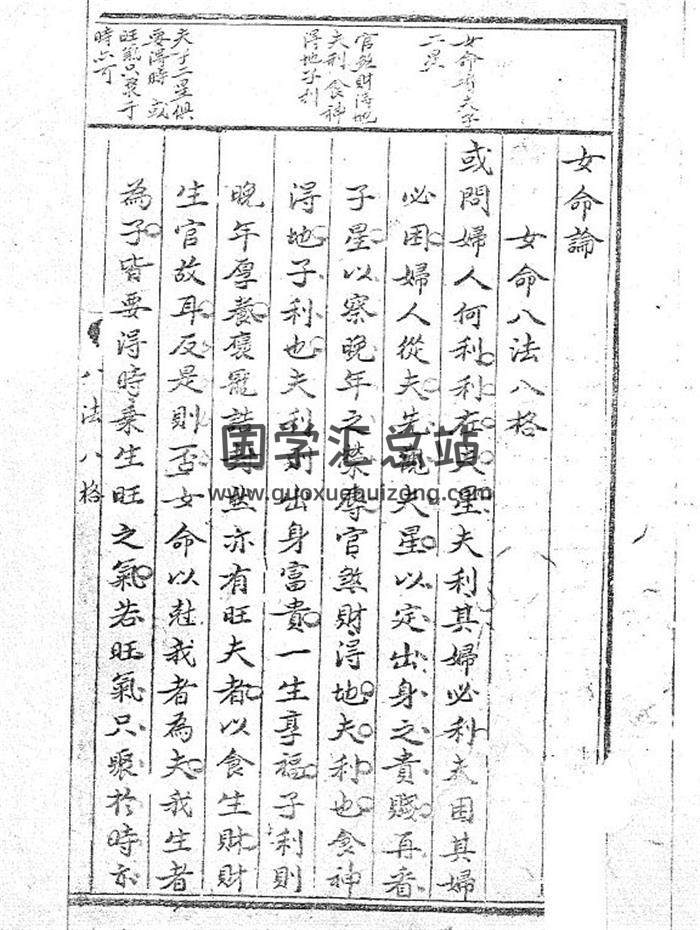 女命論
女命八法八格
或問婦人何利利在夫星夫利其婦必利夫困其婦
必困婦人從夫先觀夫星以定出身之貴賤再看
子星以察晚年之榮辱官煞財淂地夫利也食神
淂地子利也夫利則出身富貴一生享福子利則
晚年厚養褒寵誥封然亦有旺夫者以食生財財
生官故耳反是則否女命以尅我者為夫我生者
為子皆要淂時乗生旺之氣若旺氣只聚於時亦
女命者夫子
二星
官煞財淂地
夫利食神
淂地子利
夫子二星俱
要淂時或
旺氣只聚于
時亦可
八法八格
国学汇总站
www.guoxuehuizong.com